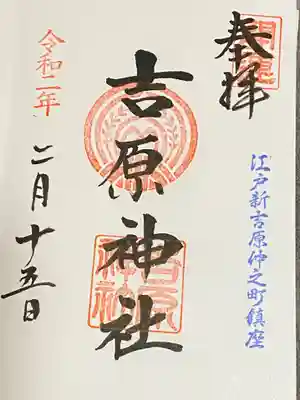 開運
奉拝
江戸新吉原仲之町鎮座
吉原神社
吉原神社
令和二年
二月十五日